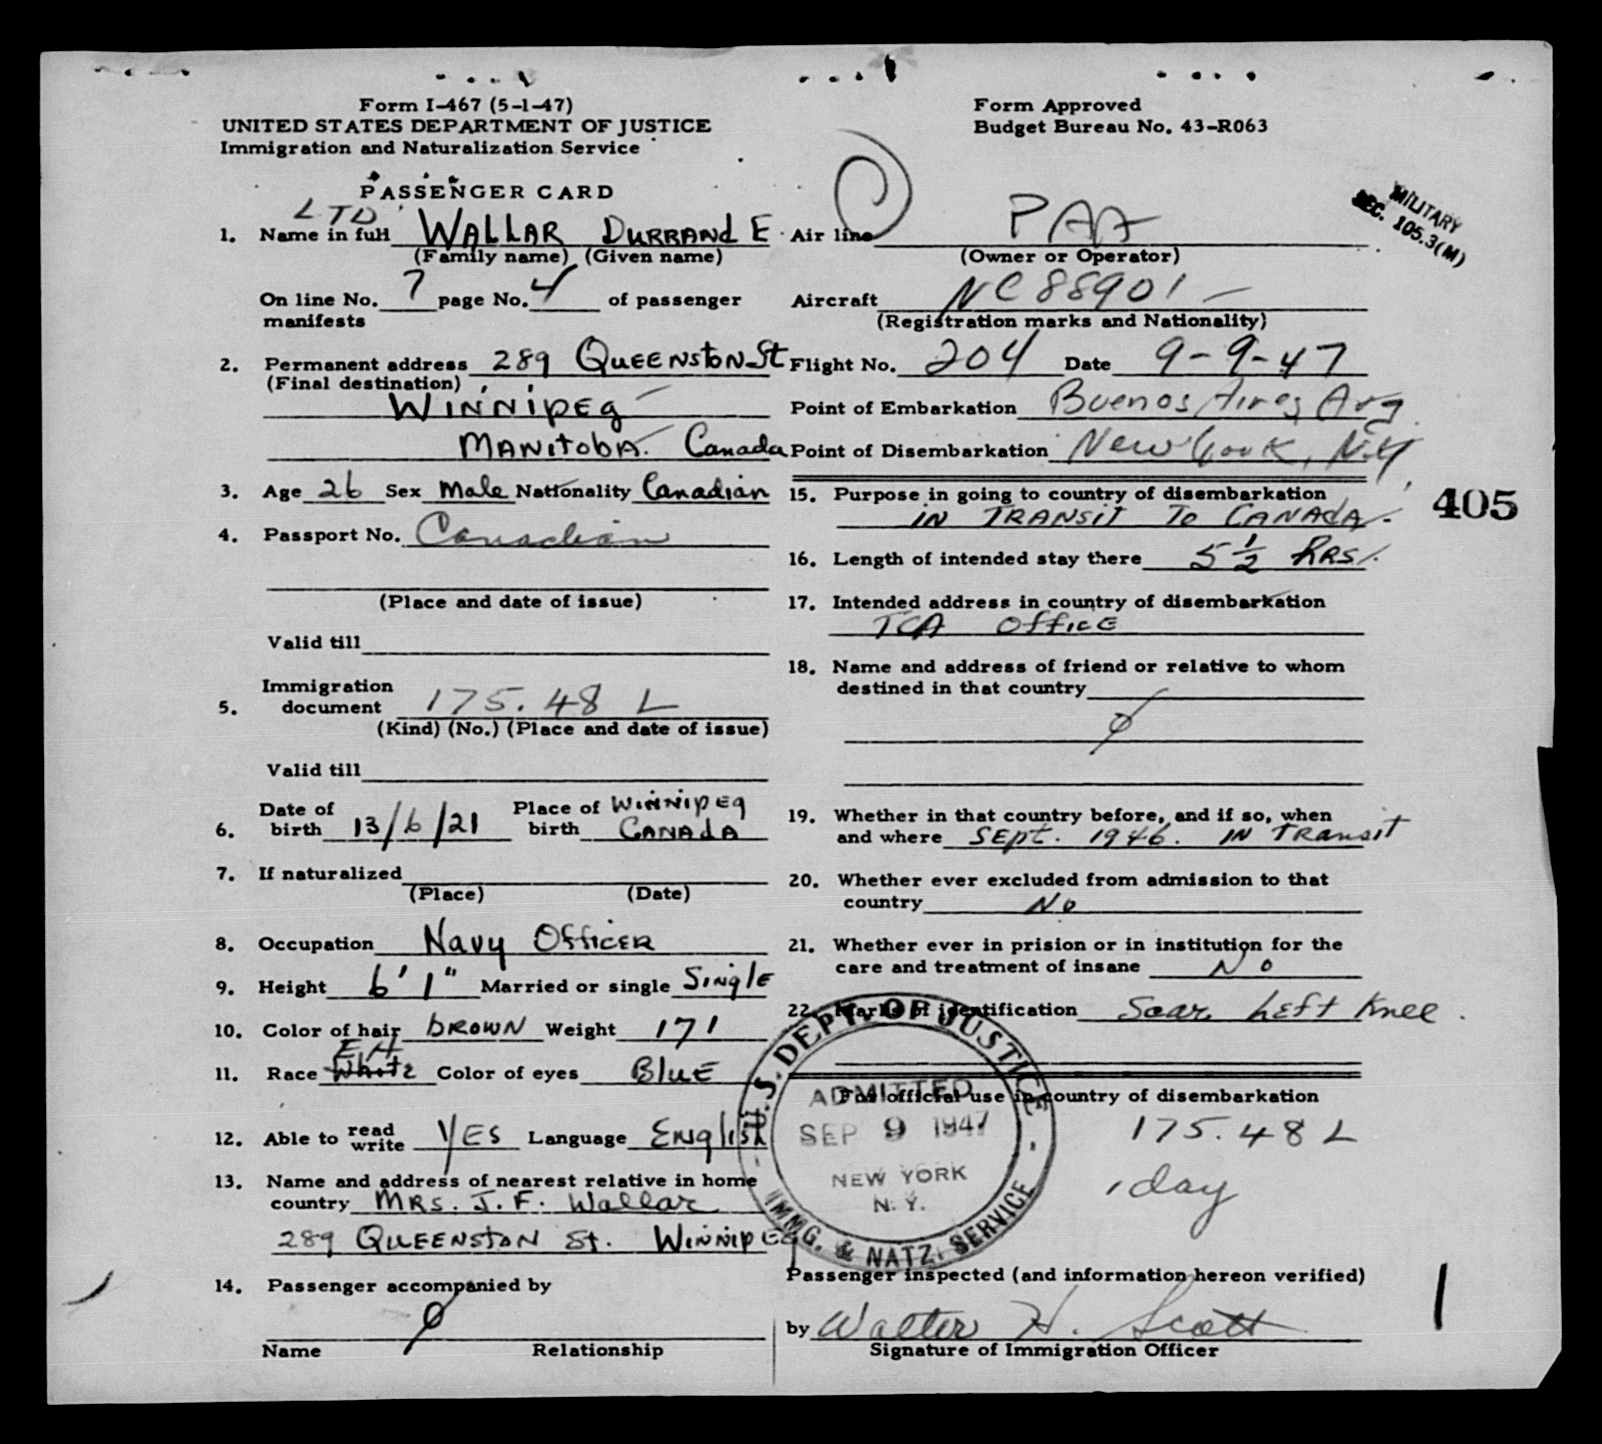 Form I-467 (5-1-47)
UNITED STATES DEPARTMENT OF JUSTICE
Immigration and Naturalization Service
PASSENGER CARD
LTD
1. Name in full WALLAR DURRAND E
(Family name) (Given name)
On line No. 7 page No. 4 of passenger
manifests
2. Permanent address 289 QUEENSTON St
(Final destination)
WINNIPEG
MANITOBA. Canada
3. Age 26 Sex Male Nationality Canadian
4. Passport No. Canadian
(Place and date of issue)
Valid till
Immigration
5. document 175.48 L
(Kind) (No.) (Place and date of issue)
Valid till
Date of Place of WINNIPEG
6. birth 13/6/21 birth CANADA
7. If naturalized
(Place) (Date)
8. Occupation Navy OFFICER
9. Height 6' 1" Married or single SINGLE
10. Color of hair BROWN Weight 171
EH
11. Race White Color of eyes BLUE
12. Able to read write YES Language English
13. Name and address of nearest relative in home
country MRS. J. F. Wallar
289 QUEENSTON St. WINNIPEG
14. Passenger accompanied by
Ø
Name Relationship
Form Approved
Budget Bureau No. 43-R063
MILITARY
SEC. 105.3(M)
Air line PAA
(Owner or Operator)
Aircraft NC 88901
(Registration marks and Nationality)
Flight No. 204 Date 9-9-47
Point of Embarkation Buenos Aires Arg
Point of Disembarkation New York, N.Y.
15. Purpose in going to country of disembarkation
IN TRANSIT TO CANADA.
405
16. Length of intended stay there 5 1/2 HRS.
17. Intended address in country of disembarkation
TCA OFFICE
18. Name and address of friend or relative to whom
destined in that country
Ø
19. Whether in that country before, and if so, when
and where SEPT. 1946. IN TRANSIT
20. Whether ever excluded from admission to that
country No
21. Whether ever in prision or in institution for the
care and treatment of insane No
22. Marks of identification Scar Left Knee.
For official use in country of disembarkation
175.48 L
1 day
U.S. DEPT. OF JUSTICE
ADMITTED
SEP 9 1947
NEW YORK
N. Y.
IMMG. & NATZ. SERVICE
Passenger inspected (and information hereon verified)
by Walter H. Scott
Signature of Immigration Officer